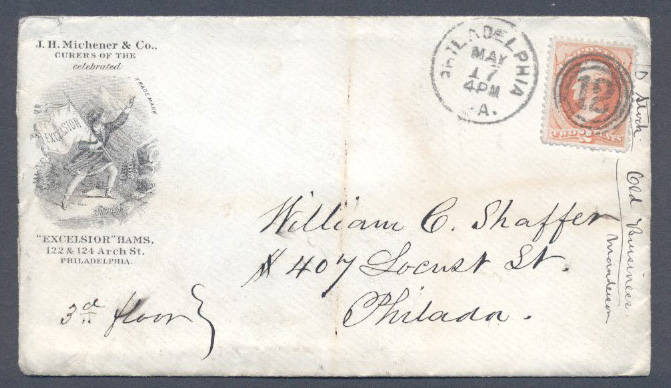 J. H. Michener & Co.,
CURERS OF THE
celebrated
TRADE MARK
EXCELSIOR
"EXCELSIOR" HAMS,
122 & 124 Arch St.
PHILADELPHIA.
PHILADELPHIA
MAY
17
4PM
PA.
12
TWO CENTS
William C. Shaffer
# 407 Locust St.
Philada.
3d floor
Old Business